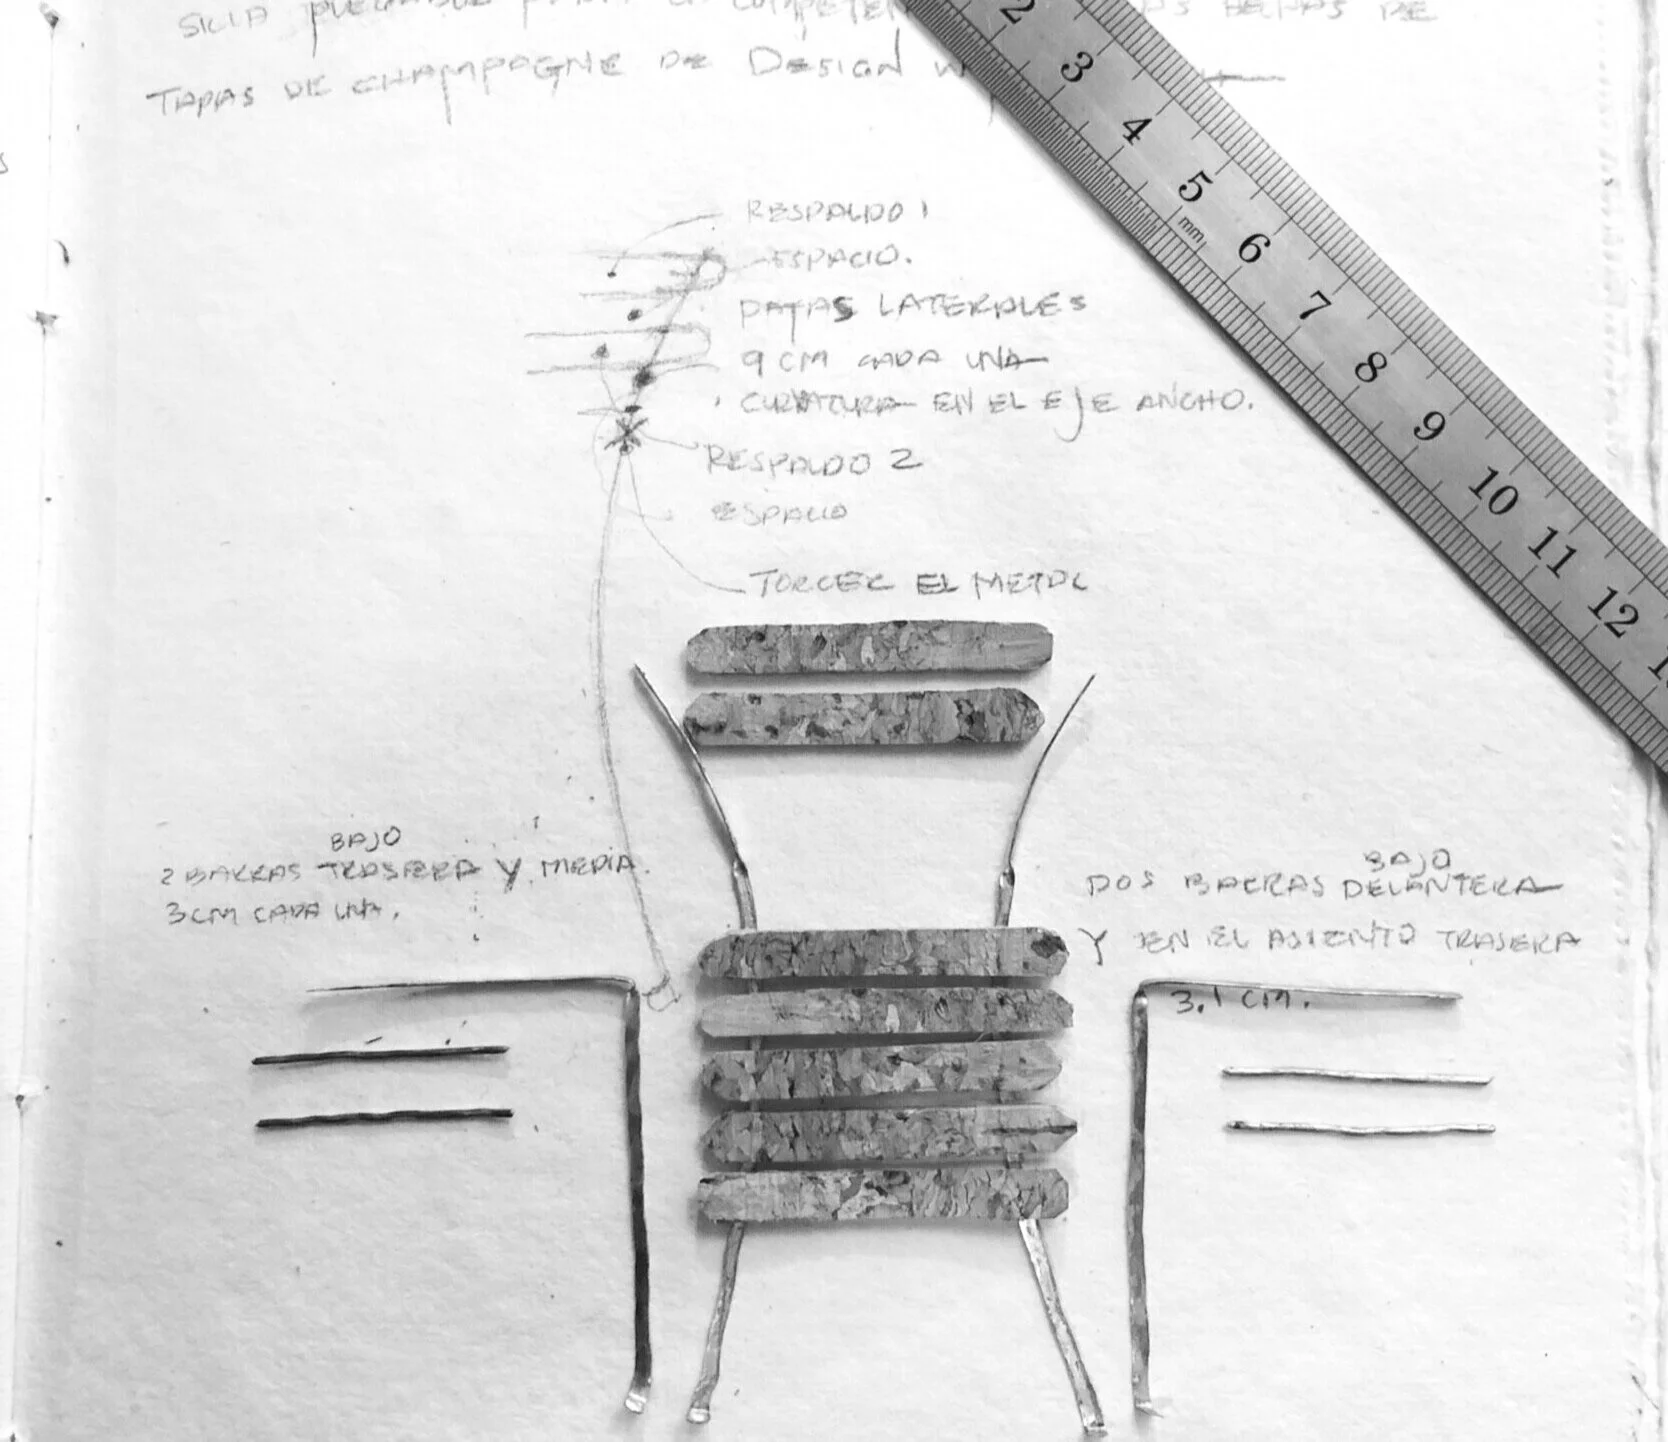 SILLA PLEGABLE PARA LA COMPETEN
TAPAS DE CHAMPAGNE DE DESIGN W
RESPALDO 1
ESPACIO.
PATAS LATERALES
9 CM CADA UNA
CURVATURA EN EL EJE ANCHO.
RESPALDO 2
ESPACIO
TORCER EL METAL
BAJO
2 BARRAS TRASERA Y MEDIA.
3 CM CADA UNA.
BAJO
DOS BARRAS DELANTERA
Y EN EL ASIENTO TRASERA
3.1 CM.
2
3
4
5
mm
6
7
8
9
10
11
12